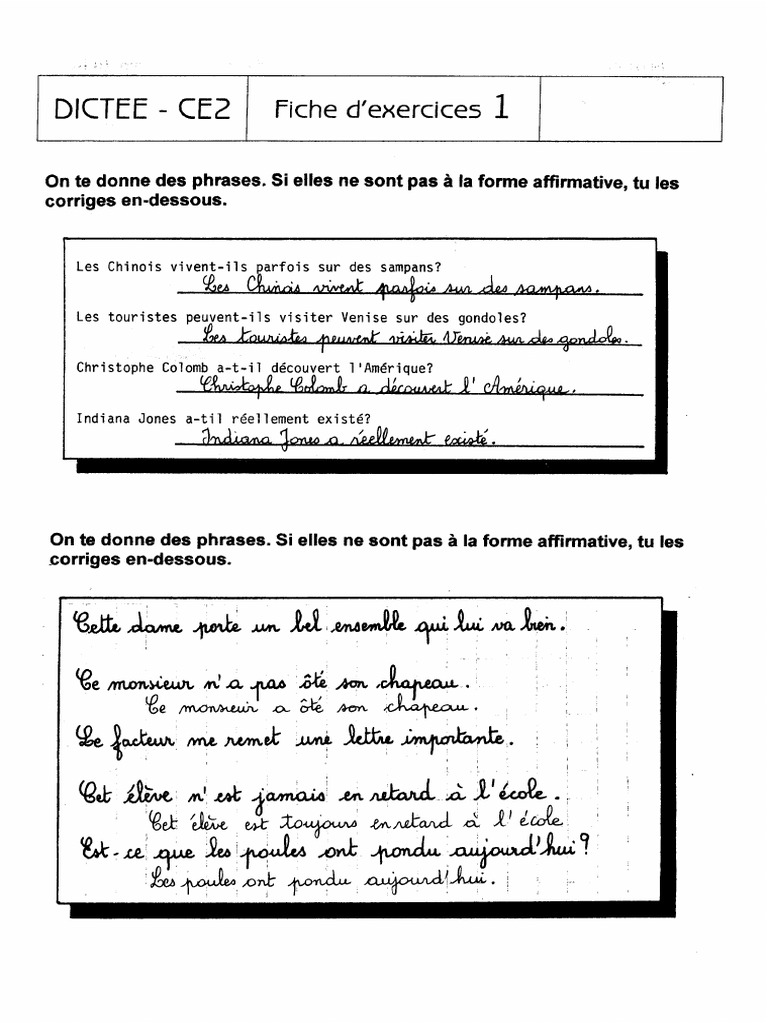 DICTEE - CE2
Fiche d'exercices 1
On te donne des phrases. Si elles ne sont pas à la forme affirmative, tu les
corriges en-dessous.
Les Chinois vivent-ils parfois sur des sampans?
Les Chinois vivent parfois sur des sampans.
Les touristes peuvent-ils visiter Venise sur des gondoles?
Les touristes peuvent visiter Venise sur des gondoles.
Christophe Colomb a-t-il découvert l'Amérique?
Christophe Colomb a découvert l'Amérique.
Indiana Jones a-til réellement existé?
Indiana Jones a réellement existé.
On te donne des phrases. Si elles ne sont pas à la forme affirmative, tu les
corriges en-dessous.
Cette dame porte un bel ensemble qui lui va bien.
Ce monsieur n'a pas ôté son chapeau.
Ce monsieur a ôté son chapeau.
Le facteur me remet une lettre importante.
Cet élève n'est jamais en retard à l'école.
Cet élève est toujours en retard à l'école
Est-ce que les poules ont pondu aujourd'hui?
Les poules ont pondu aujourd'hui.